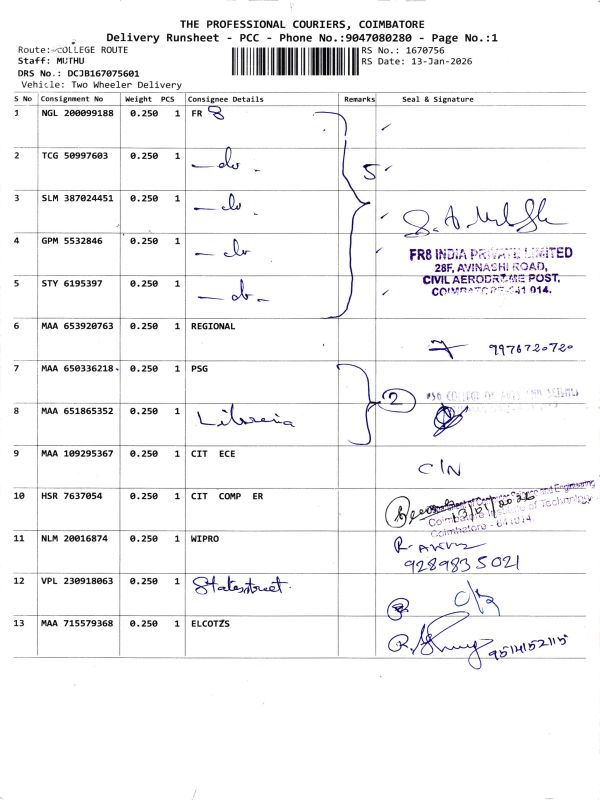 THE PROFESSIONAL COURIERS, COIMBATORE
Delivery Runsheet - PCC - Phone No.:9047080280 - Page No.:1
Route: COLLEGE ROUTE
RS No.: 1670756
Staff: MUTHU
RS Date: 13-Jan-2026
DRS No.: DCJB167075601
Vehicle: Two Wheeler Delivery
S No Consignment No Weight PCS Consignee Details Remarks Seal & Signature
1 NGL 200099188 0.250 1 FR 8
2 TCG 50997603 0.250 1 — do - 5
3 SLM 387024451 0.250 1 — do
4 GPM 5532846 0.250 1 — do
FR8 INDIA PRIVATE LIMITED
28F, AVINASHI ROAD,
CIVIL AERODROME POST,
COIMBATORE-641 014.
5 STY 6195397 0.250 1 — do -
6 MAA 653920763 0.250 1 REGIONAL 9976720720
7 MAA 650336218 0.250 1 PSG
2 PSG COLLEGE OF ARTS AND SCIENCE
8 MAA 651865352 0.250 1
9 MAA 109295367 0.250 1 CIT ECE C/N
10 HSR 7637054 0.250 1 CIT COMP ER
Computer Science and Engineering
13/01/2026
Coimbatore Institute of Technology
Coimbatore - 641014
11 NLM 20016874 0.250 1 WIPRO
9289835021
12 VPL 230918063 0.250 1 Statestreet.
13 MAA 715579368 0.250 1 ELCOTZS
9514152115